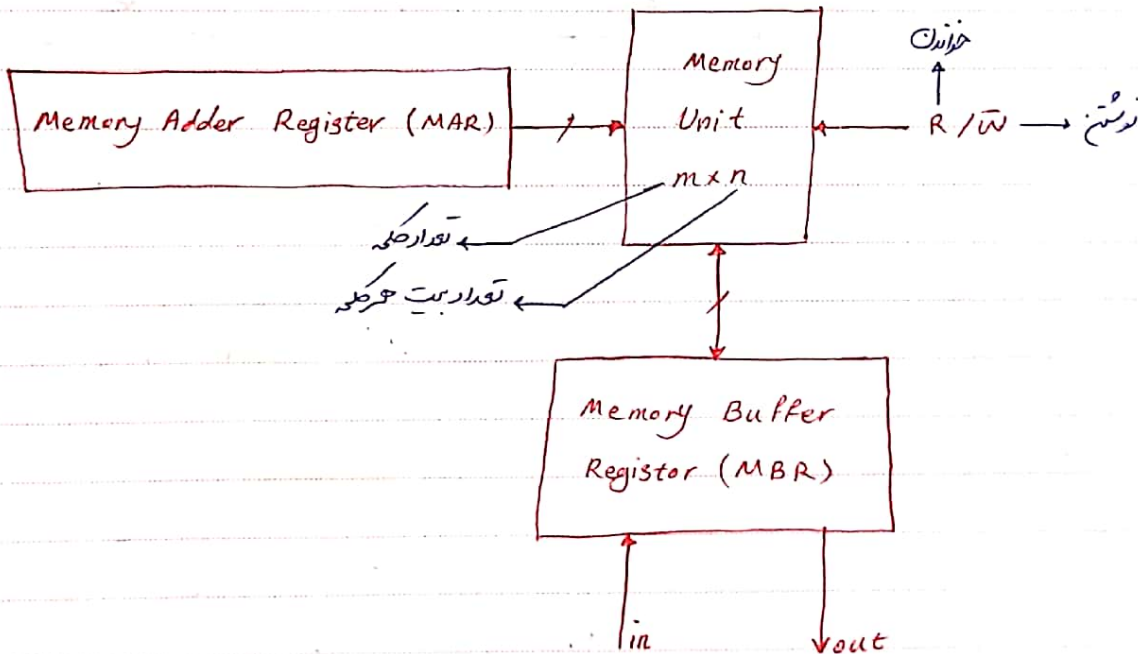 خواندن
Memory Adder Register (MAR)
Memory
Unit
m x n
R / W̅
نوشتن
تعداد کلمه
تعداد بیت هر کلمه
Memory Buffer
Registor (MBR)
in
out